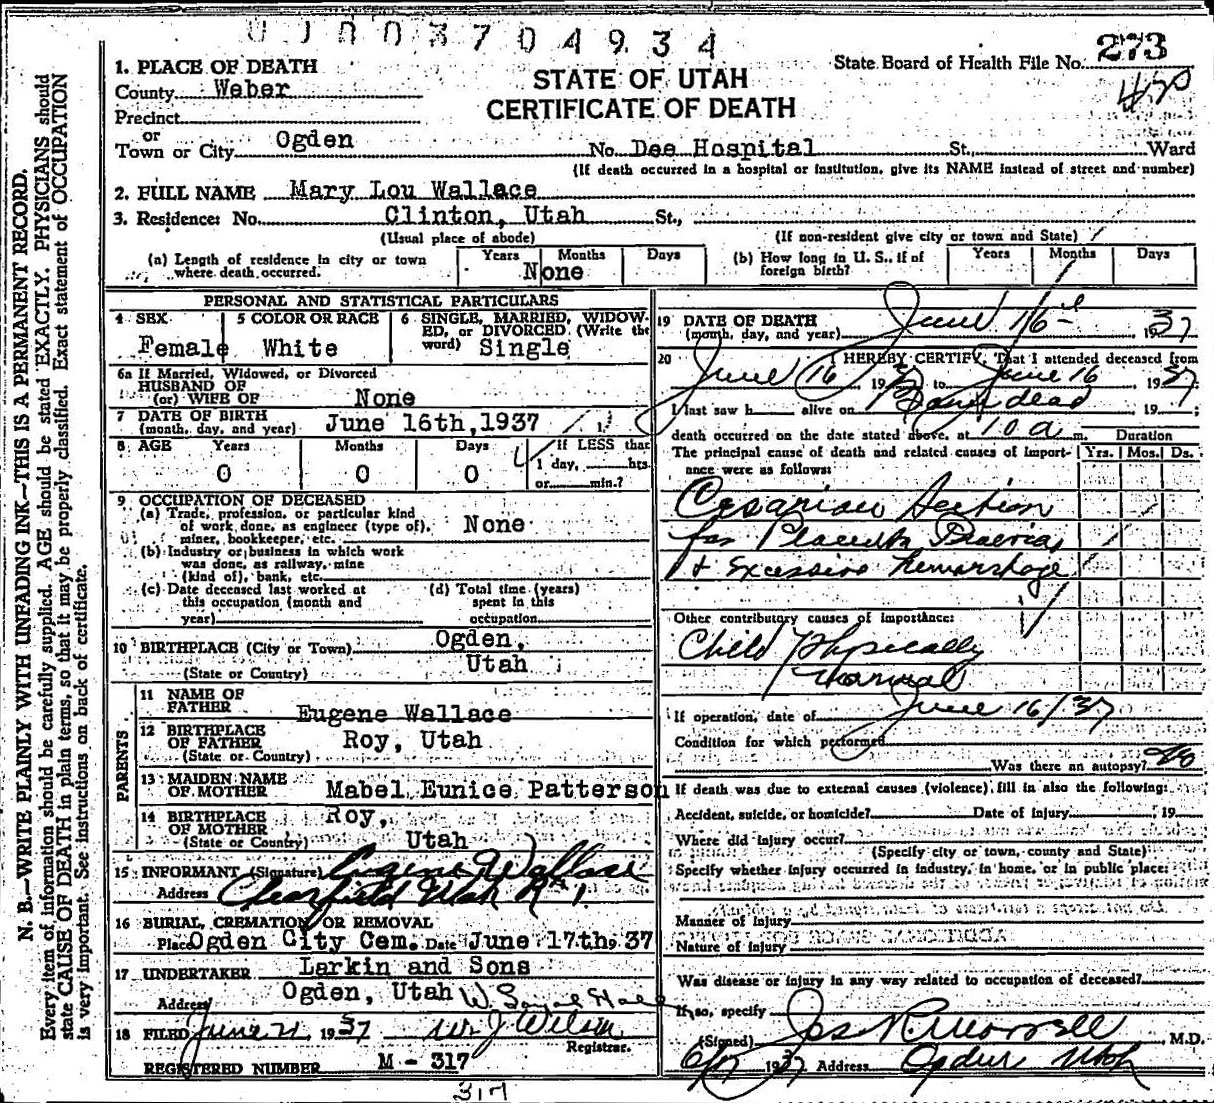 U J 0 0 3 7 0 4 9 3 4
273
State Board of Health File No.
STATE OF UTAH
CERTIFICATE OF DEATH
1. PLACE OF DEATH
County Weber
Precinct
or
Town or City Ogden No. Dee Hospital St., Ward
(If death occurred in a hospital or institution, give its NAME instead of street and number)
2. FULL NAME Mary Lou Wallace
3. Residence: No. Clinton, Utah St.,
(Usual place of abode) (If non-resident give city or town and State)
(a) Length of residence in city or town where death occurred. Years Months Days None
(b) How long in U. S., if of foreign birth? Years Months Days
PERSONAL AND STATISTICAL PARTICULARS
4 SEX Female
5 COLOR OR RACE White
6 SINGLE, MARRIED, WIDOWED, or DIVORCED (Write the word) Single
6a If Married, Widowed, or Divorced
HUSBAND OF
(or) WIFE OF None
7 DATE OF BIRTH
(month, day, and year) June 16th, 1937
8 AGE Years Months Days If LESS than
0 0 0 1 day, hrs.
or min.?
9 OCCUPATION OF DECEASED
(a) Trade, profession, or particular kind
of work done, as engineer (type of), None
miner, bookkeeper, etc.
(b) Industry or business in which work
was done, as railway, mine
(kind of), bank, etc.
(c) Date deceased last worked at
this occupation (month and
year)
(d) Total time (years)
spent in this
occupation
10 BIRTHPLACE (City or Town) Ogden,
(State or Country) Utah
PARENTS
11 NAME OF
FATHER Eugene Wallace
12 BIRTHPLACE
OF FATHER Roy, Utah
(State or Country)
13 MAIDEN NAME
OF MOTHER Mabel Eunice Patterson
14 BIRTHPLACE Roy,
OF MOTHER
(State or Country) Utah
15 INFORMANT (Signature) Eugene Wallace
Address Clearfield Utah R#1.
16 BURIAL, CREMATION OR REMOVAL
Place Ogden City Cem. Date June 17th, 37
17 UNDERTAKER Larkin and Sons
Address Ogden, Utah
18 FILED June 21 1937 W. J. Wilson
Registrar.
REGISTERED NUMBER M - 317
317
19 DATE OF DEATH
(month, day, and year) June 16 1937
20 I HEREBY CERTIFY, That I attended deceased from
June 16 1937 to June 16 1937
I last saw h alive on Born dead 19 ;
death occurred on the date stated above, at 10 a m.
Duration
The principal cause of death and related causes of importance were as follows: Yrs. Mos. Ds.
Cesarian Section
for Placenta Praevia
+ Excessive hemorrhage
Other contributory causes of importance:
Child Physically
normal
If operation, date of June 16/37
Condition for which performed
Was there an autopsy? No
If death was due to external causes (violence), fill in also the following:
Accident, suicide, or homicide? Date of injury , 19
Where did injury occur?
(Specify city or town, county and State)
Specify whether injury occurred in industry, in home, or in public place:
Manner of Injury
Nature of injury
Was disease or injury in any way related to occupation of deceased?
If so, specify
(Signed) Jas R. Morrell M.D.
1937 Address Ogden Utah
N. B.—WRITE PLAINLY WITH UNFADING INK—THIS IS A PERMANENT RECORD.
Every item of information should be carefully supplied. AGE should be stated EXACTLY. PHYSICIANS should
state CAUSE OF DEATH in plain terms, so that it may be properly classified. Exact statement of OCCUPATION
is very important. See instructions on back of certificate.